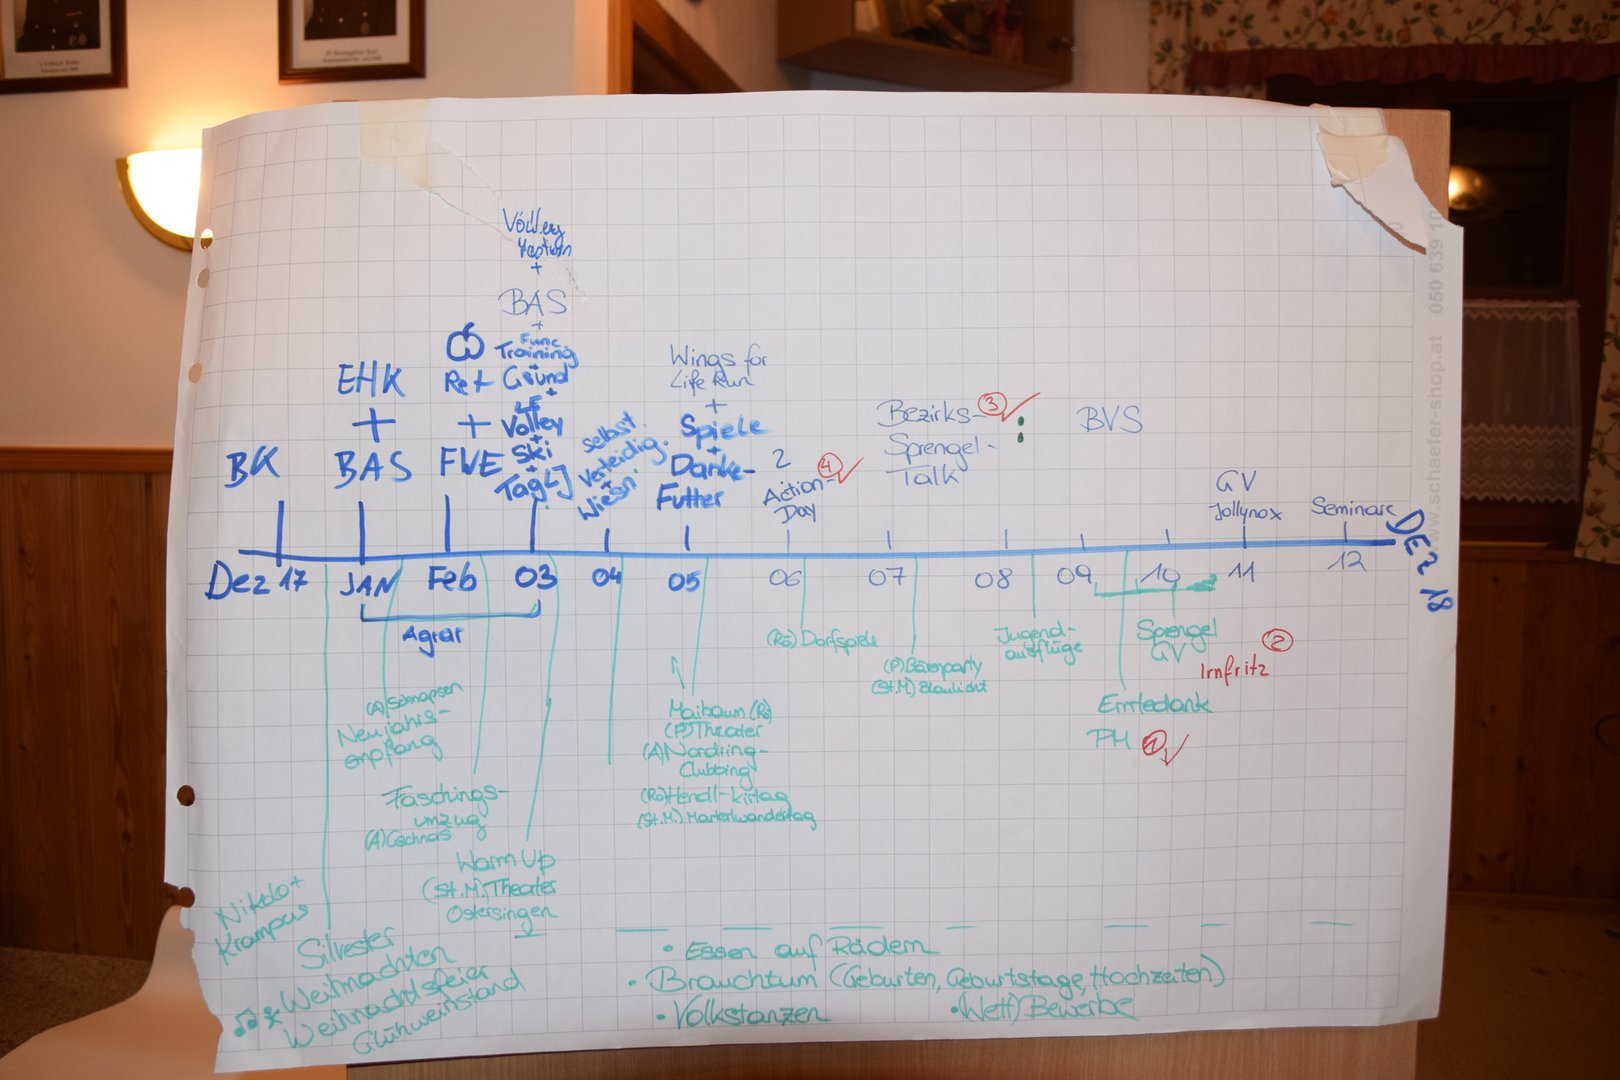 BK
EHK
+
BAS
Ret
+
FWE
Volley
+
BAS
+
Func
Training
Grund
+
Volley
+
Ski
+
Tag
Selbst
Verteidig.
+
Wiesn
Wings for
Life Run
+
Spiele
+
Danke-
Futter
2
Action-
Day
4
Bezirks-
Sprengel-
Talk
3
BVS
GV
Jollynox
Seminare
DEZ 18
Dez 17
JAN
Feb
03
04
05
06
07
08
09
10
11
12
Agrar
(A) Schnapsen
Neujahrs-
empfang
Faschings-
umzug
(A) Gschnas
Warm Up
(St.M.) Theater
Ostersingen
Maibaum (Rö)
(P) Theater
(A) Nordring-
Clubbing
(Rö) Hendl-kirtag
(St.M.) Marterlwandertag
(Rö) Dorfspiele
(P) Bärenparty
(St.M) Blaulicht
Jugend-
ausflüge
Sprengel
GV
Irnfritz
2
Erntedank
PH
1
Nikolo +
Krampus
Silvester
Weihnachten
Weihnachtsfeier
Glühweinstand
• Essen auf Rädern
• Brauchtum (Geburten, Geburtstage, Hochzeiten)
• Volkstanzen
• (Wett) Bewerbe
www.schaefer-shop.at 050 639 10